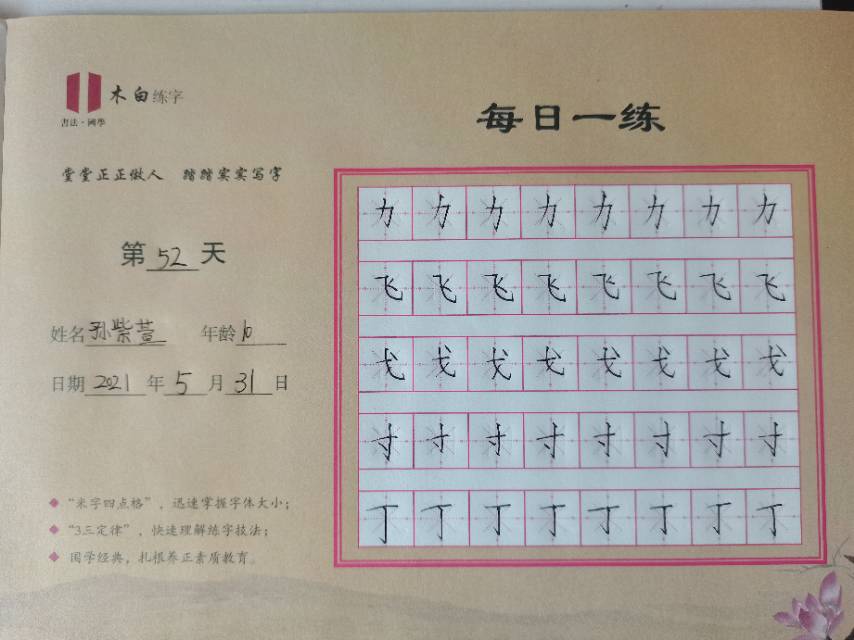 木白练字
書法·國學
每日一练
堂堂正正做人 踏踏实实写字
第52天
姓名孙紫萱 年龄10
日期2021年5月31日
"米字四点格",迅速掌握字体大小;
"3三定律",快速理解练字技法;
国学经典,扎根养正素质教育。
力力力力力力力力
飞飞飞飞飞飞飞飞
戈戈戈戈戈戈戈戈
寸寸寸寸寸寸寸寸
丁丁丁丁丁丁丁丁